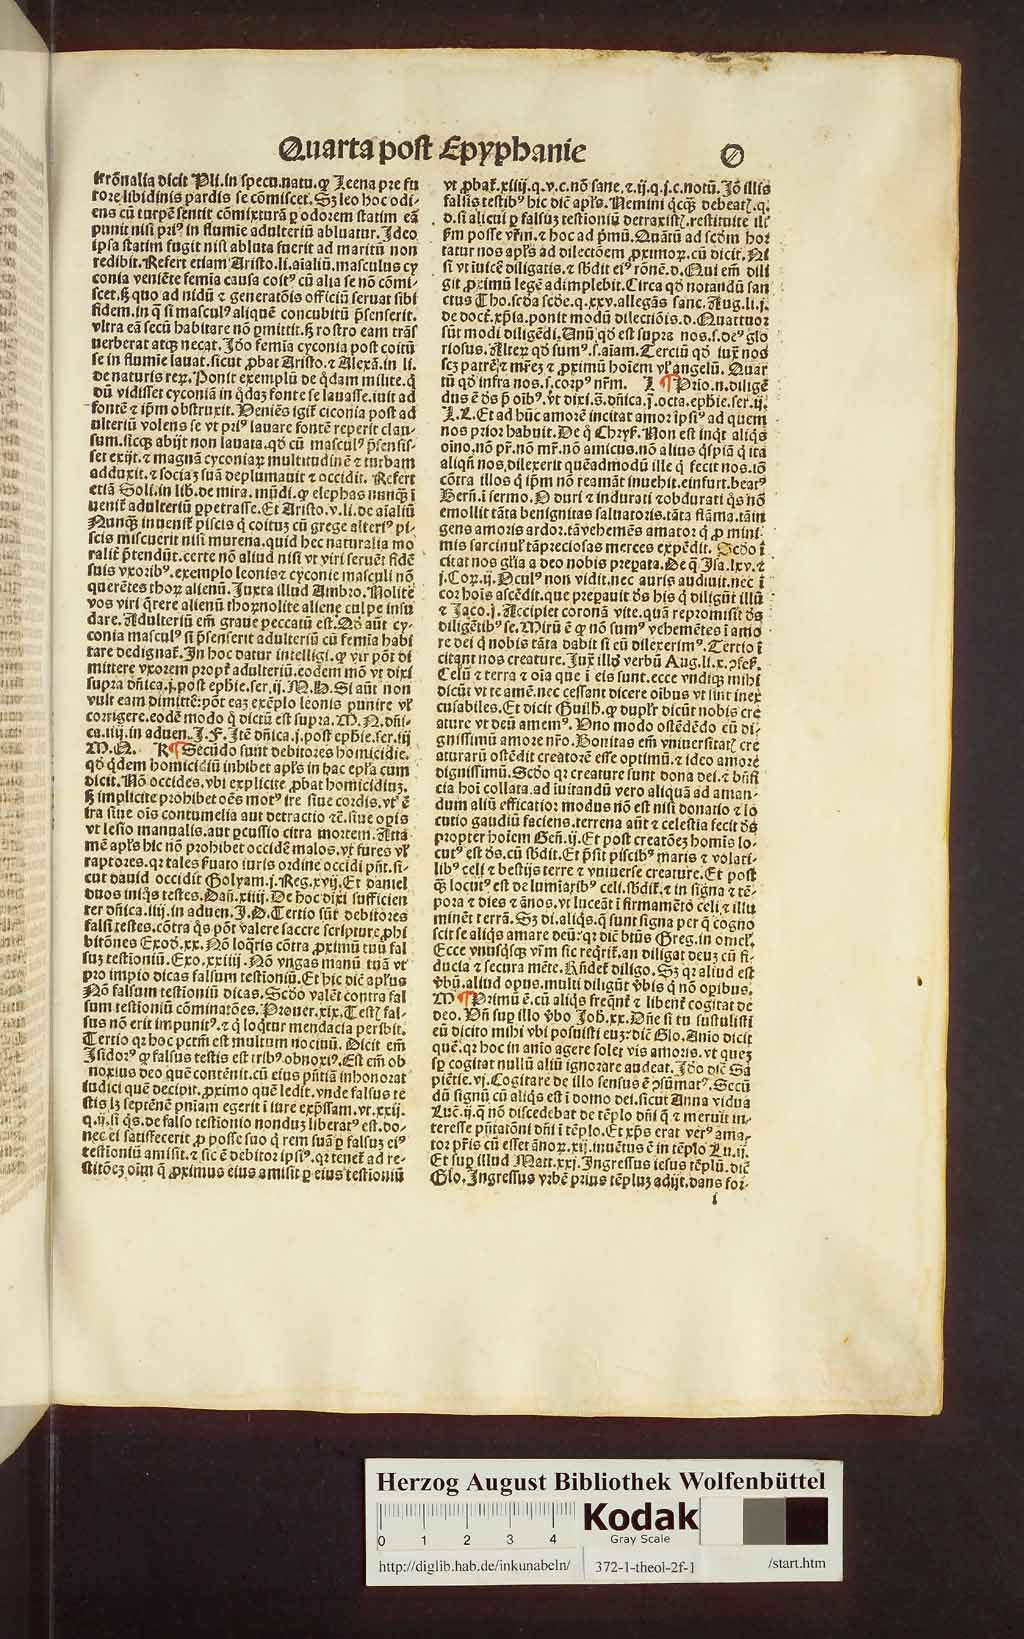 Quarta post Epyphanie
O
krōnalia dicit Pli. in specu. natu. ꝙ Leena pre fu
rore libidinis pardis se cōmiscet. Sꝫ leo hoc odi-
ens cū turpē sentit cōmixturā ꝑ odorem statim eā
punit nisi priꝰ in flumīe adulteriū abluatur. Ideo
ipsa statim fugit nisi abluta fuerit ad maritū non
redibit. Refert etiam Aristo. li. aīaliū. masculus cy
conia veniēte femīa causa coitꝰ cū alia se nō cōmi-
scet. sꝫ quo ad nidū ⁊ generatōis officiū seruat sibi
fidem. in qͣ si masculꝰ aliquē concubitū p̄senserit.
vltra eā secū habitare nō ꝑmittit. sꝫ rostro eam trās
uerberat atqꝫ necat. Jdo femīa cyconia post coitū
se in flumīe lauat. sicut ꝓbat Aristo. ⁊ Alexā. in li.
de naturis reꝝ. Ponit exemplū de q̄dam milite. q̄
dū vidisset cyconiā in q̄daꝫ fonte se lauasse. iuit ad
fontē ⁊ ip̄m obstruxit. Veniēs igit̄ ciconia post ad
ulteriū volens se vt priꝰ lauare fontē reperit clau-
sum. sicqꝫ abijt non lauata. qd̄ cū masculꝰ p̄sensis-
set exijt. ⁊ magnā cyconiaꝝ multitudinē ⁊ turbam
adduxit. ⁊ sociaꝫ suā deplumauit ⁊ occidit. Refert
etiā Soli. in lib. de mira. mūdi. ꝙ elephas nunqꝫ ī
uenit̄ adulteriū ꝑpetrasse. Et Aristo. v. li. de aīaliū
Nunqꝫ inuenit̄ piscis q̄ coituꝫ cū grege alteriꝰ pi-
scis miscuerit nisi murena. quid hec naturalia mo
ralit̄ p̄tendūt. certe nō aliud nisi vt viri seruēt fidē
suis vxoribꝰ. exemplo leonis ⁊ cyconie masculi nō
querētes thoꝝ alienū. Juxta illud Ambro. Nolite
vos viri q̄rere alienū thoꝝ nolite aliene culpe insu
dare. Adulteriū em̄ graue peccatū est. Qd̄ aūt cy-
conia masculꝰ si p̄senserit adulteriū cū femīa habi
tare dedignat̄. In hoc datur intelligi. ꝙ vir pōt di
mittere vxorem propt̄ adulteriū. eodem mō vt dixi
supra dn̄ica. j. post ephie. ser. ij. M. H. Si aūt non
vult eam dimittē: pōt eaꝫ exēplo leonis punire vl̄
corrigere. eodē modo q̄ dictū est supra. M. N. dn̄i-
ca. iiij. in aduen. J. F. Jtē dn̄ica. j. post ephie. ser. iij
M. Q. K ¶ Secūdo sunt debitores homicidie.
qd̄ q̄dem homicidiū inhibet apl̄s in hac epl̄a cum
dicit. Nō occides. vbi explicite ꝓbat homicidiuꝫ.
sꝫ implicite prohibet oēs motꝰ ire siue cordis. vt̄ ē
ira siue ois contumelia aut detractio ⁊c̄. siue opis
vt lesio manualis. aut ꝑcussio citra mortem. Atta
mē apl̄s hic nō prohibet occidē malos. vt fures vl̄
raptores. qꝛ tales ẜuato iuris ordine occidi pn̄t. si-
cut dauid occidit Golyam. j. Reg. xvij. Et daniel
duos iniq̄s testes. Dan̄. xiiij. De hoc dixi sufficien
ter dn̄ica. iiij. in aduen. J. D. Tertio sūt debitores
falsi testes. cōtra q̄s pōt valere saccre scripture ꝓhi
bitōnes Exod. xx. Nō loq̄ris cōtra ꝓximū tuū fal
suꝫ testioniū. Exo. xxiij. Nō yngas manū tuā vt
pro impio dicas falsum testioniū. Et hic dic̄ apl̄us
Nō falsum testioniū dicas. Scdo valēt contra fal
sum testioniū cōminatōes. Prouer. xix. Testꝭ fal-
sus nō erit impunitꝰ. ⁊ q̄ loq̄tur mendacia peribit.
Tertio qꝛ hoc pctm̄ est multum nociuū. Dicit em̄
Jsidorꝰ ꝙ falsus testis est tribꝰ obnoxiꝰ. Est em̄ ob
noxius deo quē contēnit. cū eius pn̄tiā inhonorat
iudici quē decipit. ꝓximo quē ledit. vnde falsus te
stis lꝫ septēnē pn̄iam egerit ī iure exp̄ssam. vt. xxij.
q. ij. si q̄s. de falso testionio nonduꝫ liberatꝰ est. do-
nec ei satisfecerit ꝓ posse suo q̄ rem suā ꝑ falsuꝫ eiꝰ
testioniū amisit. ⁊ sic ē debitor ipsiꝰ. qꝛ tenet̄ ad re-
stitōeꝫ oīm q̄ ꝓximus eius amisit ꝑ eius testioniū
vt ꝓbat̄. xiiij. q. v. c. nō sane. ⁊. ij. q. j. c. notū. Jō illis
falsis testibꝰ hic dic̄ apl̄s. Nemini q̄cqꝫ debeatꝭ. q.
d. si alicui ꝑ falsuꝫ testioniū detraxistꝭ. restituite ill̄
ẜm posse vr̄m. ⁊ hoc ad p̄mū. Quātū ad scdm hor
tatur nos apl̄s ad dilectōem ꝓximoꝝ. cū dicit. Ni
si vt īuicē diligatis. ⁊ sb̄dit eiꝰ rōnē. d. Qui em̄ dili
git ꝓximū legē adimplebit. Circa qd̄ notandū san
ctus Tho. scda scde. q. xxv. allegās sanc. Aug. li. j.
de doct̄. xp̄ia. ponit modū dilectiōis. d. Quattuor
sūt modi diligēdi. Vnū qd̄ est supra nos. s. deꝰ glo
riosus. Alteꝝ qd̄ sumꝰ. s. aīam. Terciū qd̄ iuxͣ nos
scꝫ patrē ⁊ mr̄eꝫ ⁊ ꝓximū hoīem vl̄ angelū. Quar
tū qd̄ infra nos. s. corpꝰ nr̄m. L ¶ Prio. n. diligē
dus ē ds̄ p̄ oībꝰ. vt dixi. s̄. dn̄ica. j. octa. ephie. ser. ij.
J. L. Et ad hūc amorē incitat amor ipsiꝰ ad quem
nos prior habuit. De q̄ Chrys̄. Non est inq̄t aliq̄s
oīno. nō pr̄. nō mr̄. nō amicus. nō alius q̄spiā q̄ ita
aliqn̄ nos dilexerit quēadmodū ille q̄ fecit nos. iō
cōtra illos q̄ ip̄m nō reamāt inuehit. einsurt. beatꝰ
Bern̄. ī sermo. O duri ⁊ indurati ⁊ obdurati q̄s nō
emollit tāta benignitas saluatoris. tāta flāma. tā in
gens amoris ardor. tā vehemēs amator q̄ ꝓ mini-
mis sarcinul̄ tā preciosas merces expēdit. Scdo ī
citat nos gl̄ia a deo nobis preparata. De q̄ Jsa. lxv. ⁊
j. Coꝝ. ij. Oculꝰ non vidit. nec auris audiuit. nec ī
cor hoīs ascēdit. que preparauit ds̄ his q̄ diligūt illū
⁊ Jaco. j. Accipiet coronā vite. quā repromisit ds̄
diligētibꝰ se. Mirū ē ꝙ nō sumꝰ vehemētes ī amo
re dei q̄ nobis tāta dabit si eū dilexerimꝰ. Tertio ī
citant nos creature. Juxͣ illd̄ verbū Aug. li. x. ꝯfes̄.
Celū ⁊ terra ⁊ oīa que ī eis sunt. ecce vndiqꝫ mihi
dicūt vt te amē. nec cessant dicere oībus vt sint inex
cusabiles. Et dicit Guilh. ꝙ duplr̄ dicūt nobis cre
ature vt deū amemꝰ. Uno modo ostēdēdo cū di-
gnissimū amore nr̄o. Bonitas em̄ vniuersitatꝭ cre
aturarū ostēdit creatorē esse optimū. ⁊ ideo amore
dignissimū. Scdo qꝛ creature sunt dona dei. ⁊ bn̄fi
cia hoī collata. ad īuitandū vero aliquā ad aman-
dum aliū efficatior modus nō est nisi donatio ⁊ lo
cutio gaudiū faciens. terrena aūt ⁊ celestia fecit ds̄
propter hoīem Gen̄. ij. Et post creatōeꝫ homīs lo-
cutꝰ est ds̄. cū sb̄dit. Et p̄sit piscibꝰ maris ⁊ volati-
libꝰ celi ⁊ bestijs terre ⁊ vniuerse creature. Et post
qꝫ locutꝰ est de lumīaribꝰ celi. sb̄dit̄. ⁊ in signa ⁊ tē-
pora ⁊ dies ⁊ ānos. vt luceāt ī firmamēto celi. ⁊ illu
minēt terrā. Sꝫ di. aliq̄s. q̄ sunt signa per q̄ cogno
scit se aliq̄s amare deū: qꝛ dic̄ btūs Greg. in omel̄.
Ecce vnusq̄sqꝫ vr̄m sic req̄rit̄. an diligat deuꝫ cū fi-
ducia ⁊ secura mēte. Rn̄det̄ diligo. Sꝫ qꝛ aliud est
v̄bū. aliud opus. multi diligūt v̄bis q̄ nō opibus.
M ¶ Primū ē. cū aliq̄s freqn̄t̄ ⁊ libent̄ cogitat de
deo. Vn̄ suꝑ illo v̄bo Job. xx. Dn̄e si tu sustulisti
eū dicito mihi vbi posuisti euꝫ: dic̄ Glo. Anīo dicit
quē. qꝛ hoc in anīo agere solet vis amoris. vt queꝫ
sꝑ cogitat nullū aliū ignorare audeat. Jdo dic̄ Sa
piētie. vj. Cogitare de illo sensus ē ꝯsūmatꝰ. Secū
dū signū cū aliq̄s est ī domo dei. sicut Anna vidua
Luc̄. ij. q̄ nō discedebat de tēplo dn̄i q̄ ⁊ meruit in-
teresse pn̄tatōni dn̄i ī tēplo. Et xp̄s erat verꝰ ama-
tor pr̄is cū esset ānoꝝ. xij. inuētus ē in tēplo Lu. ij.
Et suꝑ illud Matt. xxj. Ingressus iesus tēplū. dic̄
Glo. Ingressus vrbē prius tēpluꝫ adijt. dans for-
i
Herzog August Bibliothek Wolfenbüttel
Kodak
Gray Scale
0 1 2 3 4
http://diglib.hab.de/inkunabeln/ 372-1-theol-2f-1 /start.htm